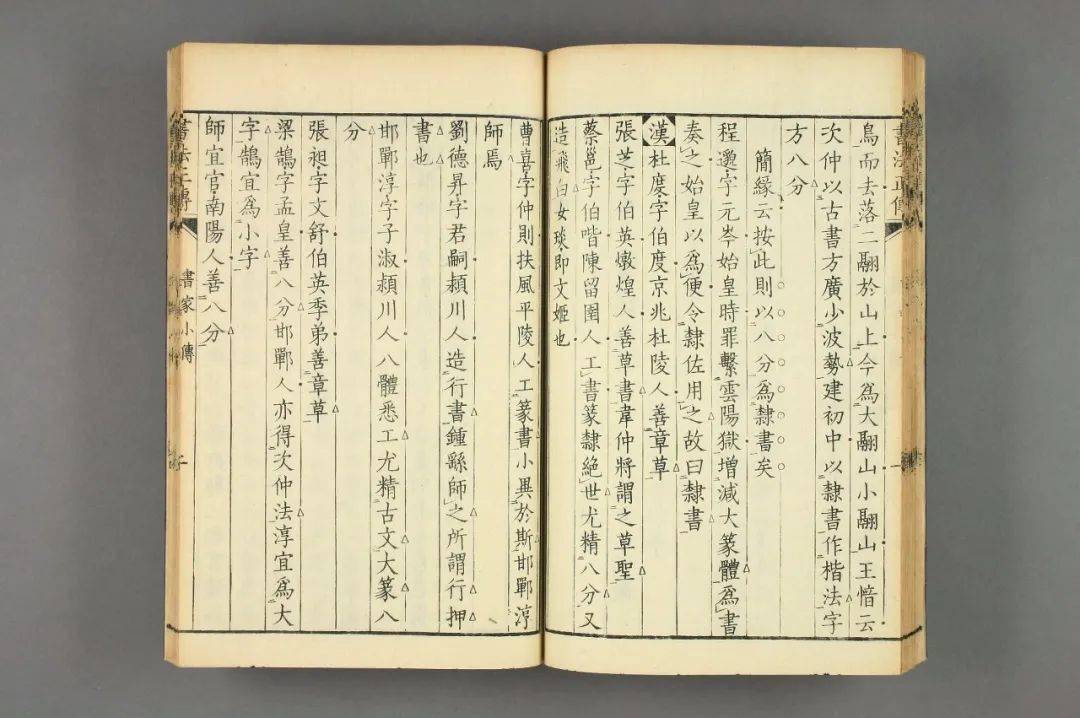 書法正傳
鳥而去落二翮於山上今爲大翮山小翮山王愔云
次仲以古書方廣少波勢建初中以隸書作楷法字
方八分
簡緣云按此則以八分爲隸書矣
程邈字元岑始皇時罪繫雲陽獄增減大篆體爲書
奏之始皇以爲便令隸佐用之故曰隸書
漢杜度字伯度京兆杜陵人善章草
張芝字伯英燉煌人善草書韋仲將謂之草聖
蔡邕字伯喈陳留圉人工書篆隸絶世尤精八分又
造飛白女琰即文姬也
曹喜字仲則扶風平陵人工篆書小異於斯邯鄲淳
師焉
劉德昇字君嗣潁川人造行書鍾繇師之所謂行押
書也
邯鄲淳字子淑潁川人八體悉工尤精古文大篆八
分
張昶字文舒伯英季弟善章草
梁鵠字孟皇善八分邯鄲人亦得次仲法淳宜爲大
字鵠宜爲小字
師宜官南陽人善八分
書法正傳
書家小傳